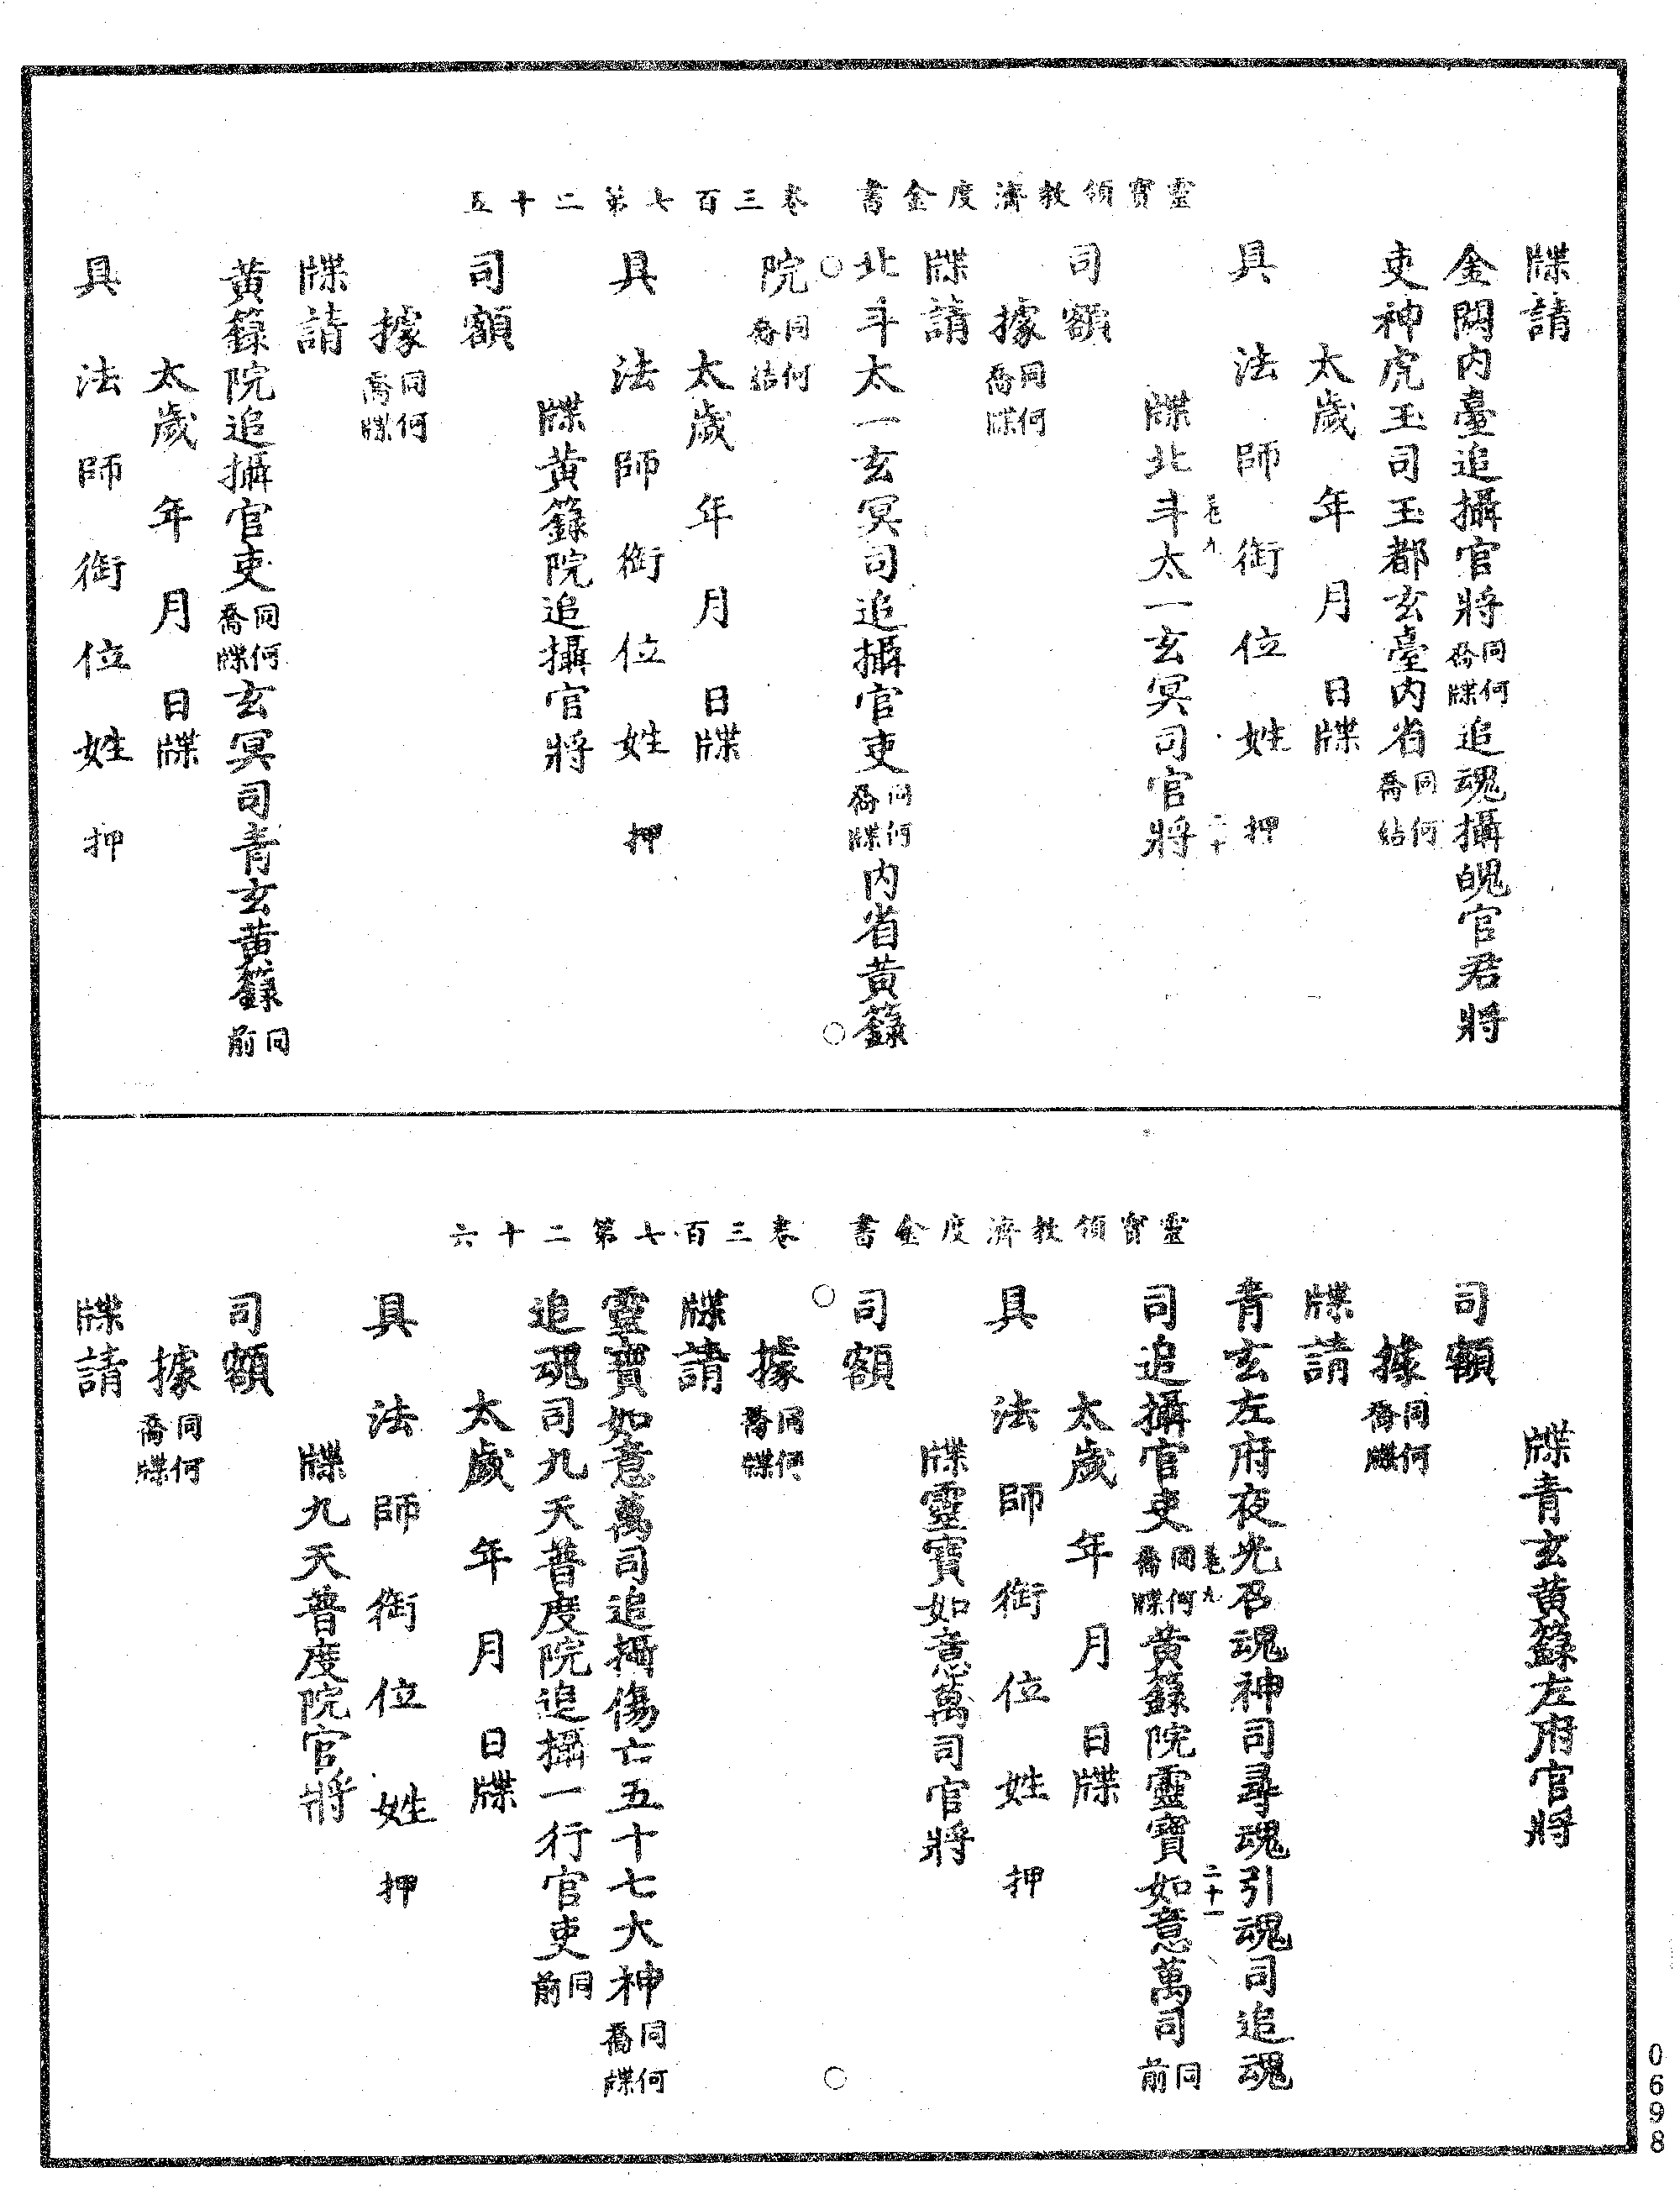 靈寶領教濟度金書　卷三百七第二十五
牒請
金闕內臺追攝官將同何喬牒追魂攝魄官君將
吏神虎玉司玉都玄臺內省同何喬結
太歲　年　月　日牒
具法師銜位姓押
二十
牒北斗太一玄冥司官將
司額
據同何喬牒
牒請
北斗太一玄冥司追攝官吏同何喬牒內省黃籙
院同何喬結
太歲　年　月　日牒
具法師銜位姓押
牒黃籙院追攝官將
司額
據同何喬牒
牒請
黃籙院追攝官吏同何喬牒玄冥司青玄黃籙同前
太歲　年　月　日牒
具法師銜位姓押
靈寶領教濟度金書　卷三百七第二十六
牒青玄黃籙左府官將
司額
據同何喬牒
牒請
青玄左府夜光召魂神司尋魂引魂司追魂
二十一
司追攝官吏同何喬牒黃籙院靈寶如意萬司同前
太歲　年　月　日牒
具法師銜位姓押
牒靈寶如意萬司官將
司額
據同何喬牒
牒請
靈寶如意萬司追攝傷亡五十七大神同何喬牒
追魂司九天普度院追攝一行官吏同前
太歲　年　月　日牒
具法師銜位姓押
牒九天普度院官將
司額
據同何喬牒
牒請
0698